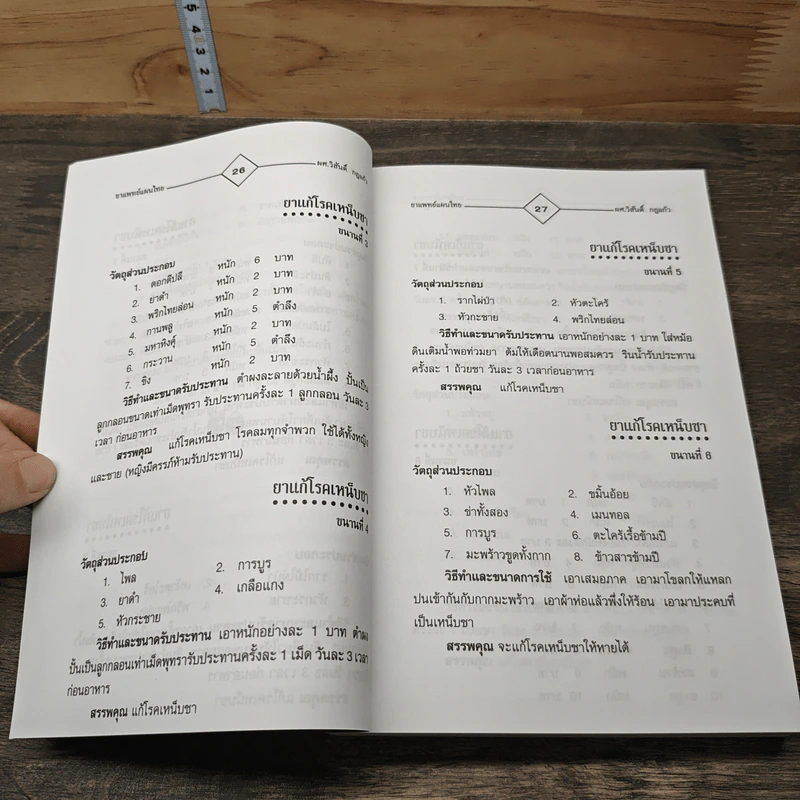 5 4 3 2 1
ยาแพทย์แผนไทย 26 ผศ.วิสันติ์ กฎแก้ว
ยาแก้โรคเหน็บชา
ขนานที่ 3
วัตถุส่วนประกอบ
1. ดอกดีปลี หนัก 6 บาท
2. ยาดำ หนัก 2 บาท
3. พริกไทยล่อน หนัก 2 บาท
4. กานพลู หนัก 5 ตำลึง
5. มหาหิงคุ์ หนัก 2 บาท
6. กระวาน หนัก 5 ตำลึง
7. ขิง หนัก 2 บาท
วิธีทำและขนาดรับประทาน ตำผงละลายด้วยน้ำผึ้ง ปั้นเป็น
ลูกกลอนขนาดเท่าเม็ดพุทรา รับประทานครั้งละ 1 ลูกกลอน วันละ 3
เวลา ก่อนอาหาร
สรรพคุณ แก้โรคเหน็บชา โรคลมทุกจำพวก ใช้ได้ทั้งหญิง
และชาย (หญิงมีครรภ์ห้ามรับประทาน)
ยาแก้โรคเหน็บชา
ขนานที่ 4
วัตถุส่วนประกอบ
1. ไพล 2. การบูร
3. ยาดำ 4. เกลือแกง
5. หัวกระชาย
วิธีทำและขนาดรับประทาน เอาหนักอย่างละ 1 บาท ตำผง
ปั้นเป็นลูกกลอนเท่าเม็ดพุทรารับประทานครั้งละ 1 เม็ด วันละ 3 เวลา
ก่อนอาหาร
สรรพคุณ แก้โรคเหน็บชา
ยาแพทย์แผนไทย 27 ผศ.วิสันติ์ กฎแก้ว
ยาแก้โรคเหน็บชา
ขนานที่ 5
วัตถุส่วนประกอบ
1. รากไผ่ป่า 2. หัวตะไคร้
3. หัวกะชาย 4. พริกไทยล่อน
วิธีทำและขนาดรับประทาน เอาหนักอย่างละ 1 บาท ใส่หม้อ
ดินเติมน้ำพอท่วมยา ต้มให้เดือดนานพอสมควร รินน้ำรับประทาน
ครั้งละ 1 ถ้วยชา วันละ 3 เวลาก่อนอาหาร
สรรพคุณ แก้โรคเหน็บชา
ยาแก้โรคเหน็บชา
ขนานที่ 6
วัตถุส่วนประกอบ
1. หัวไพล 2. ขมิ้นอ้อย
3. ข่าทั้งสอง 4. เมนทอล
5. การบูร 6. ตะไคร้เรื้อข้ามปี
7. มะพร้าวขูดทั้งกาก 8. ข้าวสารข้ามปี
วิธีทำและขนาดการใช้ เอาเสมอภาค เอามาโขลกให้แหลก
ปนเข้ากันกับกากมะพร้าว เอาผ้าห่อแล้วพึ่งให้ร้อน เอามาประคบที่
เป็นเหน็บชา
สรรพคุณ จะแก้โรคเหน็บชาให้หายได้